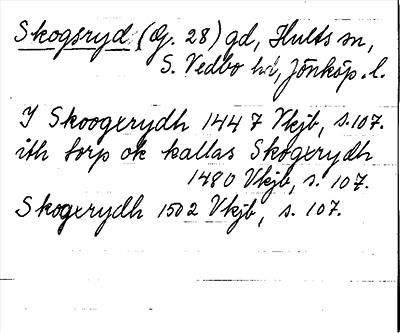 Skogsryd (G. 28) gd, Hults sn,
S. Vedbo hd, Jönköp. l.
I Skoogxrydh 1447 Vkjb, s. 107.
ith torp ok kallas Skogxrydh
1480 Vkjb, s. 107.
Skogxrydh 1502 Vkjb, s. 107.